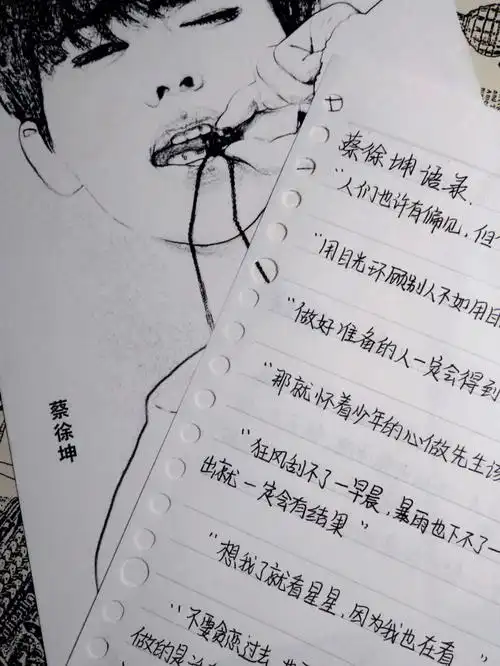 蔡徐坤
蔡徐坤语录.
"人们也许有偏见,但
"用目光环顾别人不如用目
"做好准备的人一定会得到
"那就怀着少年的心做先生该
"狂风刮不了一早晨,暴雨也下不了一
出就一定会有结果"
"想我了就看星星,因为我也在看
"不要贪恋过去
做的是